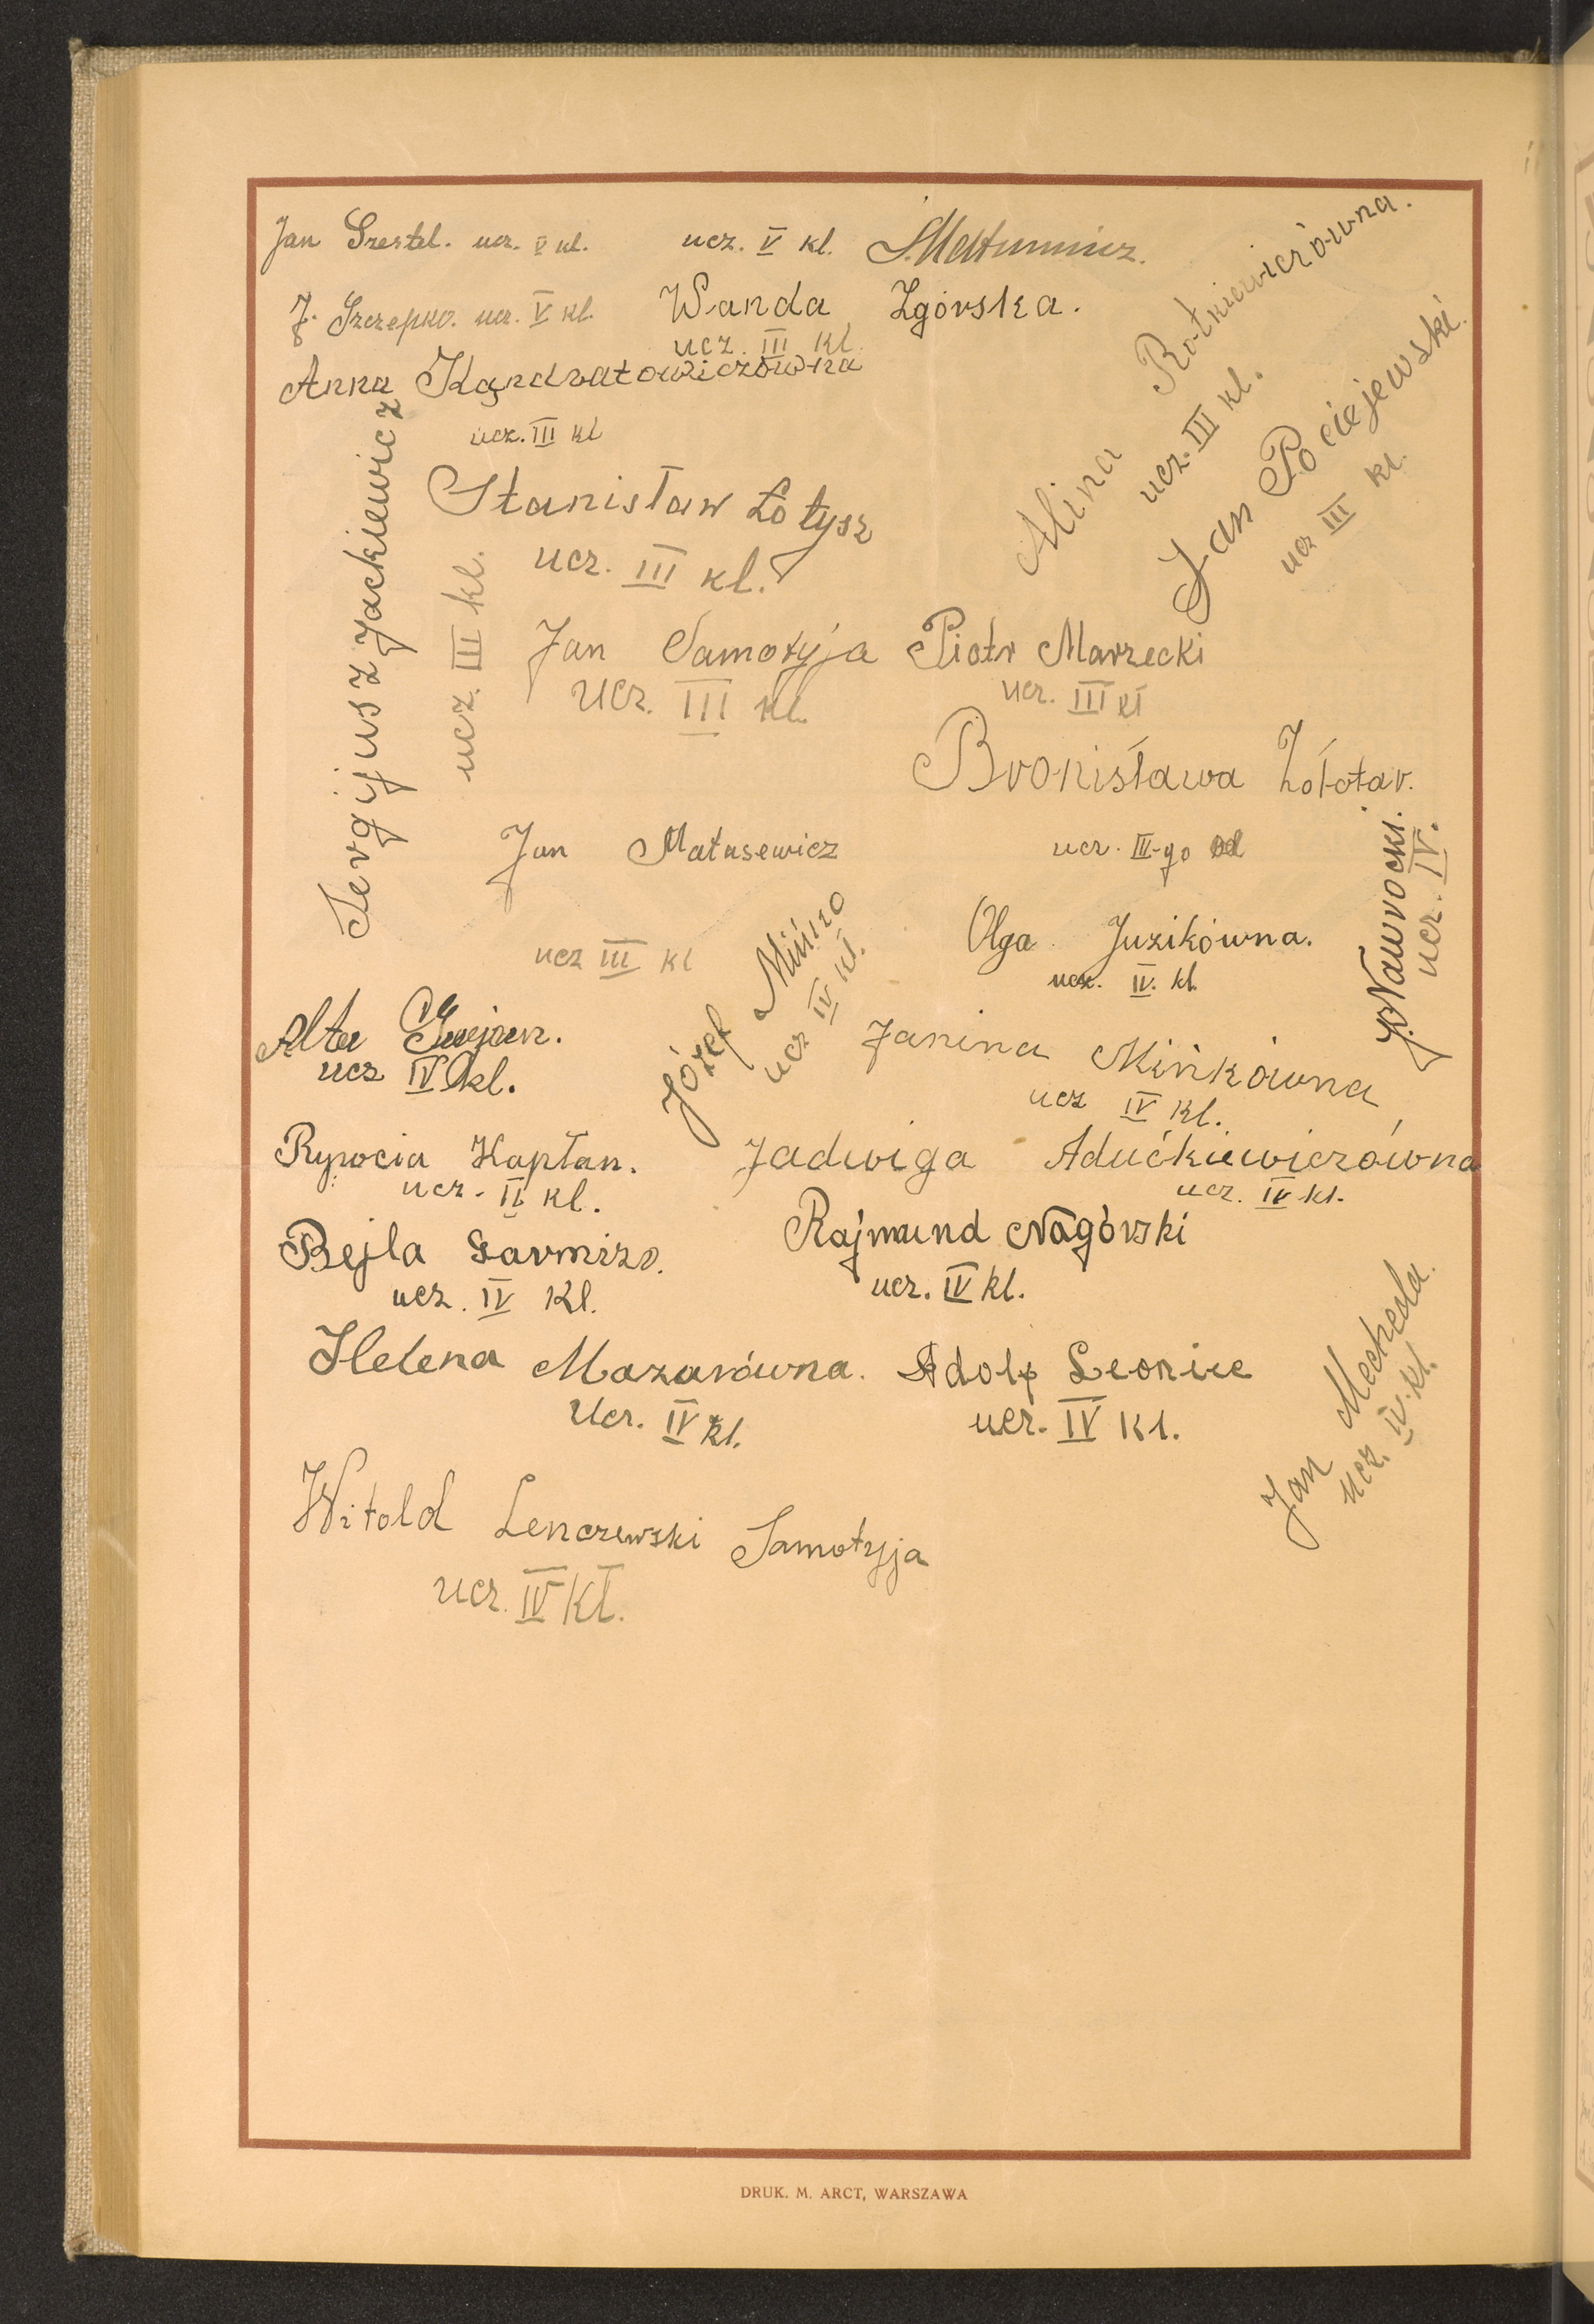 Jan Szestel. ucz. V kl.
ucz. V kl.
J. Szczepko. ucz. V kl.
Wanda Zgórska.
ucz. III kl.
Anna Kandratowiczówna
ucz. III kl
Alina Rotkiewiczówna.
ucz. III kl.
Jan Pociejewski.
ucz III kl.
Sergijusz Jackiewicz
ucz. III kl.
Stanisław Łotysz
ucz. III kl.
Jan Samotyja
ucz. III kl.
Piotr Marzecki
ucz. III kl
Bronisława Żołotar.
ucz. III-go
Jan Matusewicz
ucz III kl
J. Nawrocki.
ucz. IV.
Olga Juzikówna.
ucz. IV. kl.
Józef Mińko
ucz IV kl.
Alta
ucz IV kl.
Janina Mińkówna
ucz IV kl.
Rywcia Kapłan.
ucz. IV kl.
Jadwiga Adućkiewiczówna
ucz. IV kl.
Bejla Garmizo.
ucz. IV Kl.
Rajmund Nagórski
ucz. IV kl.
Helena Mazurówna.
Ucz. IV kl.
Adolf Leoniec
ucz. IV Kl.
Jan Mecheda.
ucz. IV. kl.
Witold Lenczewski Samotyja
ucz. IV Kl.
DRUK. M. ARCT, WARSZAWA